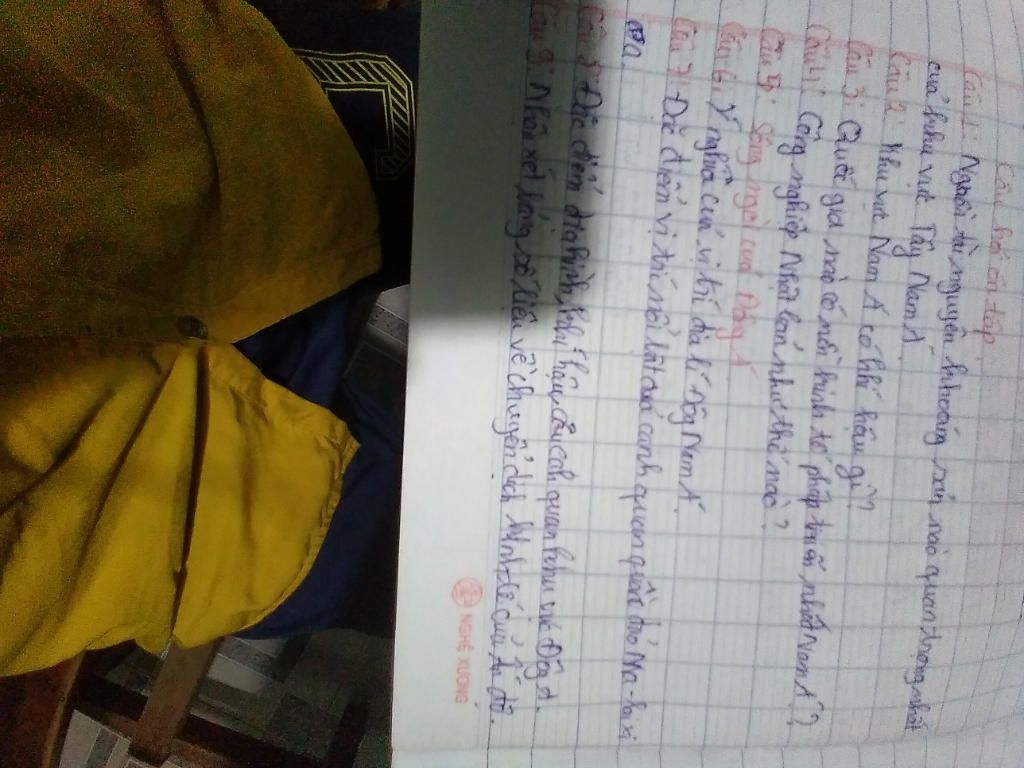 Câu hỏi ôn tập
Câu 1: Nguồn tài nguyên khoáng sản nào quan trọng nhất
của khu vực Tây Nam Á.
Câu 2: Khu vực Nam Á có khí hậu gì?
Câu 3: Quốc gia nào có nền kinh tế phát triển nhất Nam Á?
Câu 4: Công nghiệp Nhật bản như thế nào?
Câu 5: Sông ngòi của Đông Á
Câu 6: Ý nghĩa của vị trí địa lí Đông Nam Á.
Câu 7: Đặc điểm vị trí nổi bật của cảnh quan quần đảo Ma-lai-xi
a.
Câu 8: Đặc điểm địa hình, khí hậu, cảnh quan khu vực Đông Á.
Câu 9: Nhận xét bảng số liệu về chuyển dịch kinh tế của Ấn độ.
NGHÊ XƯƠNG